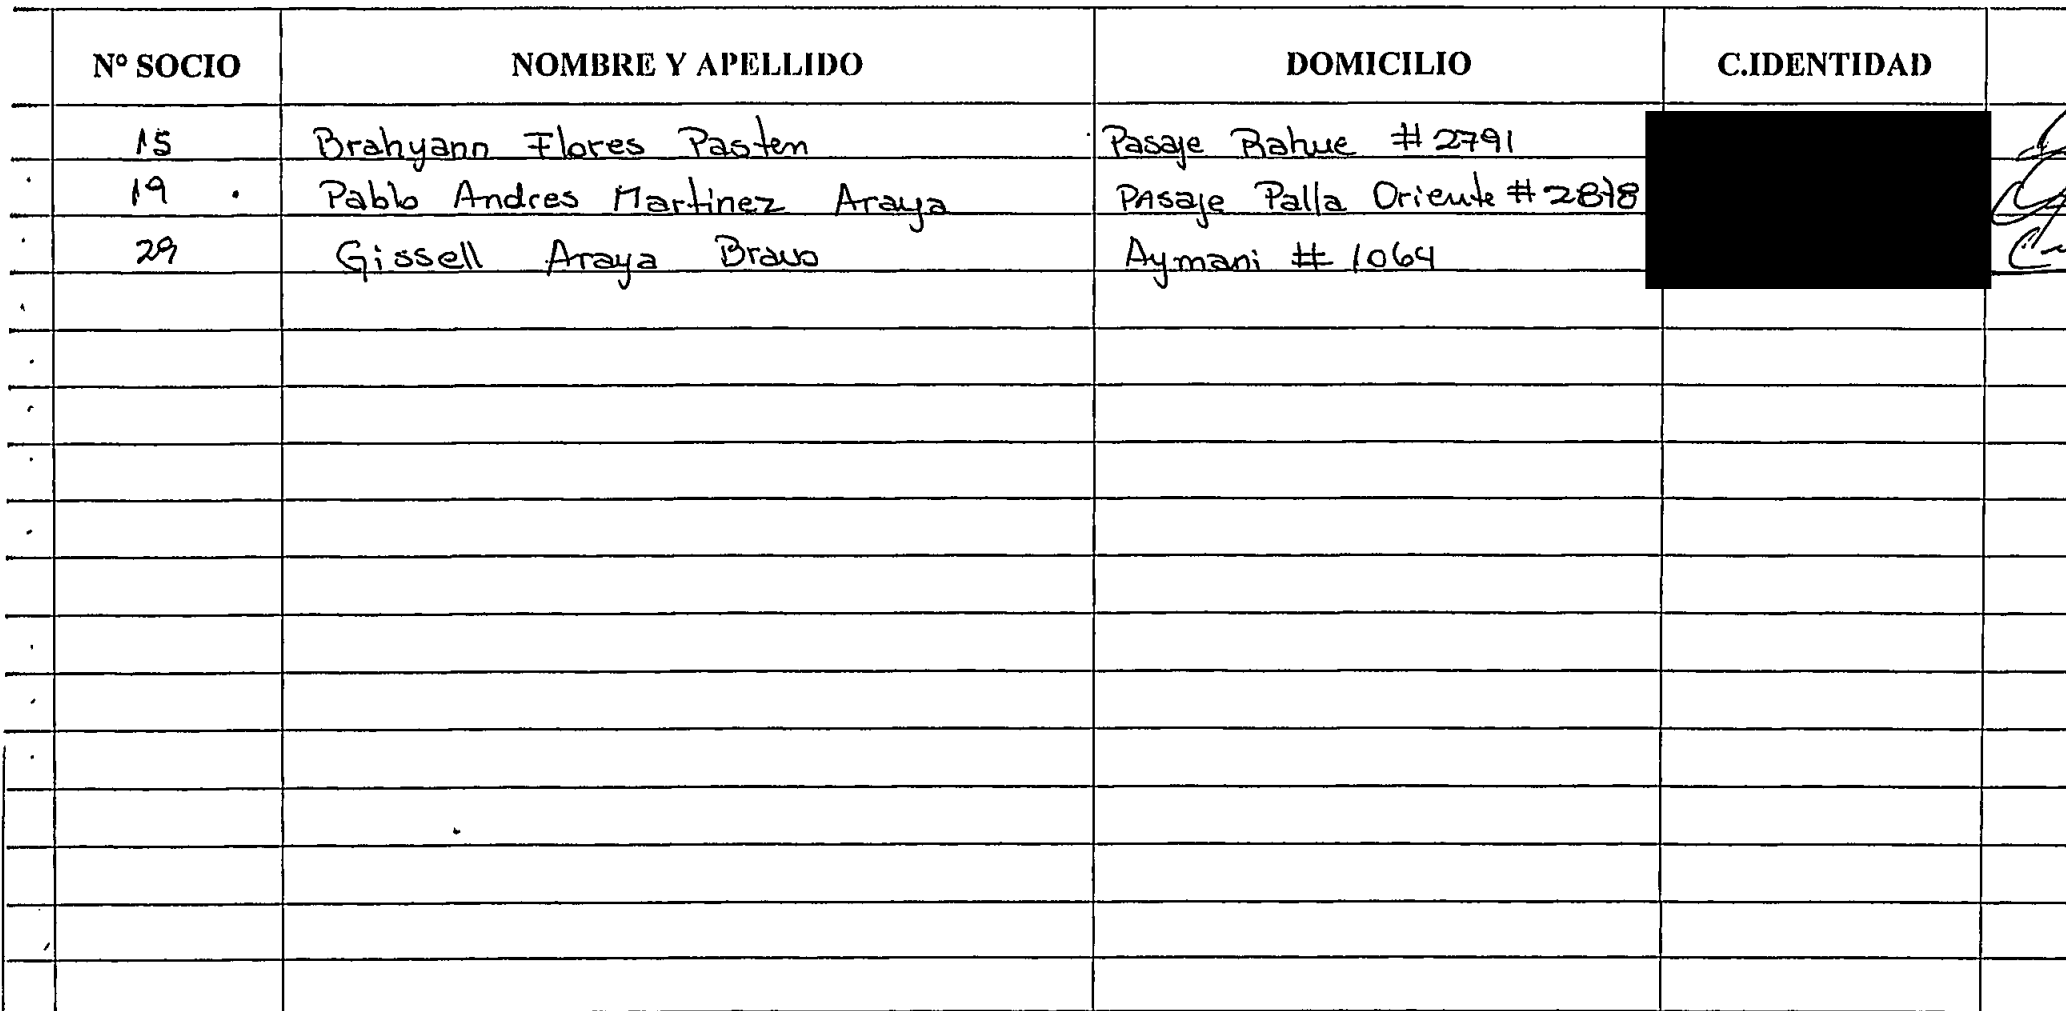 N° SOCIO NOMBRE Y APELLIDO DOMICILIO C.IDENTIDAD
15 Brahyann Flores Pasten Pasaje Rahue # 2791
19 Pablo Andres Martinez Araya PAsaje Palla Oriente #
29 Gissell Araya Bravo Aymani # 1064